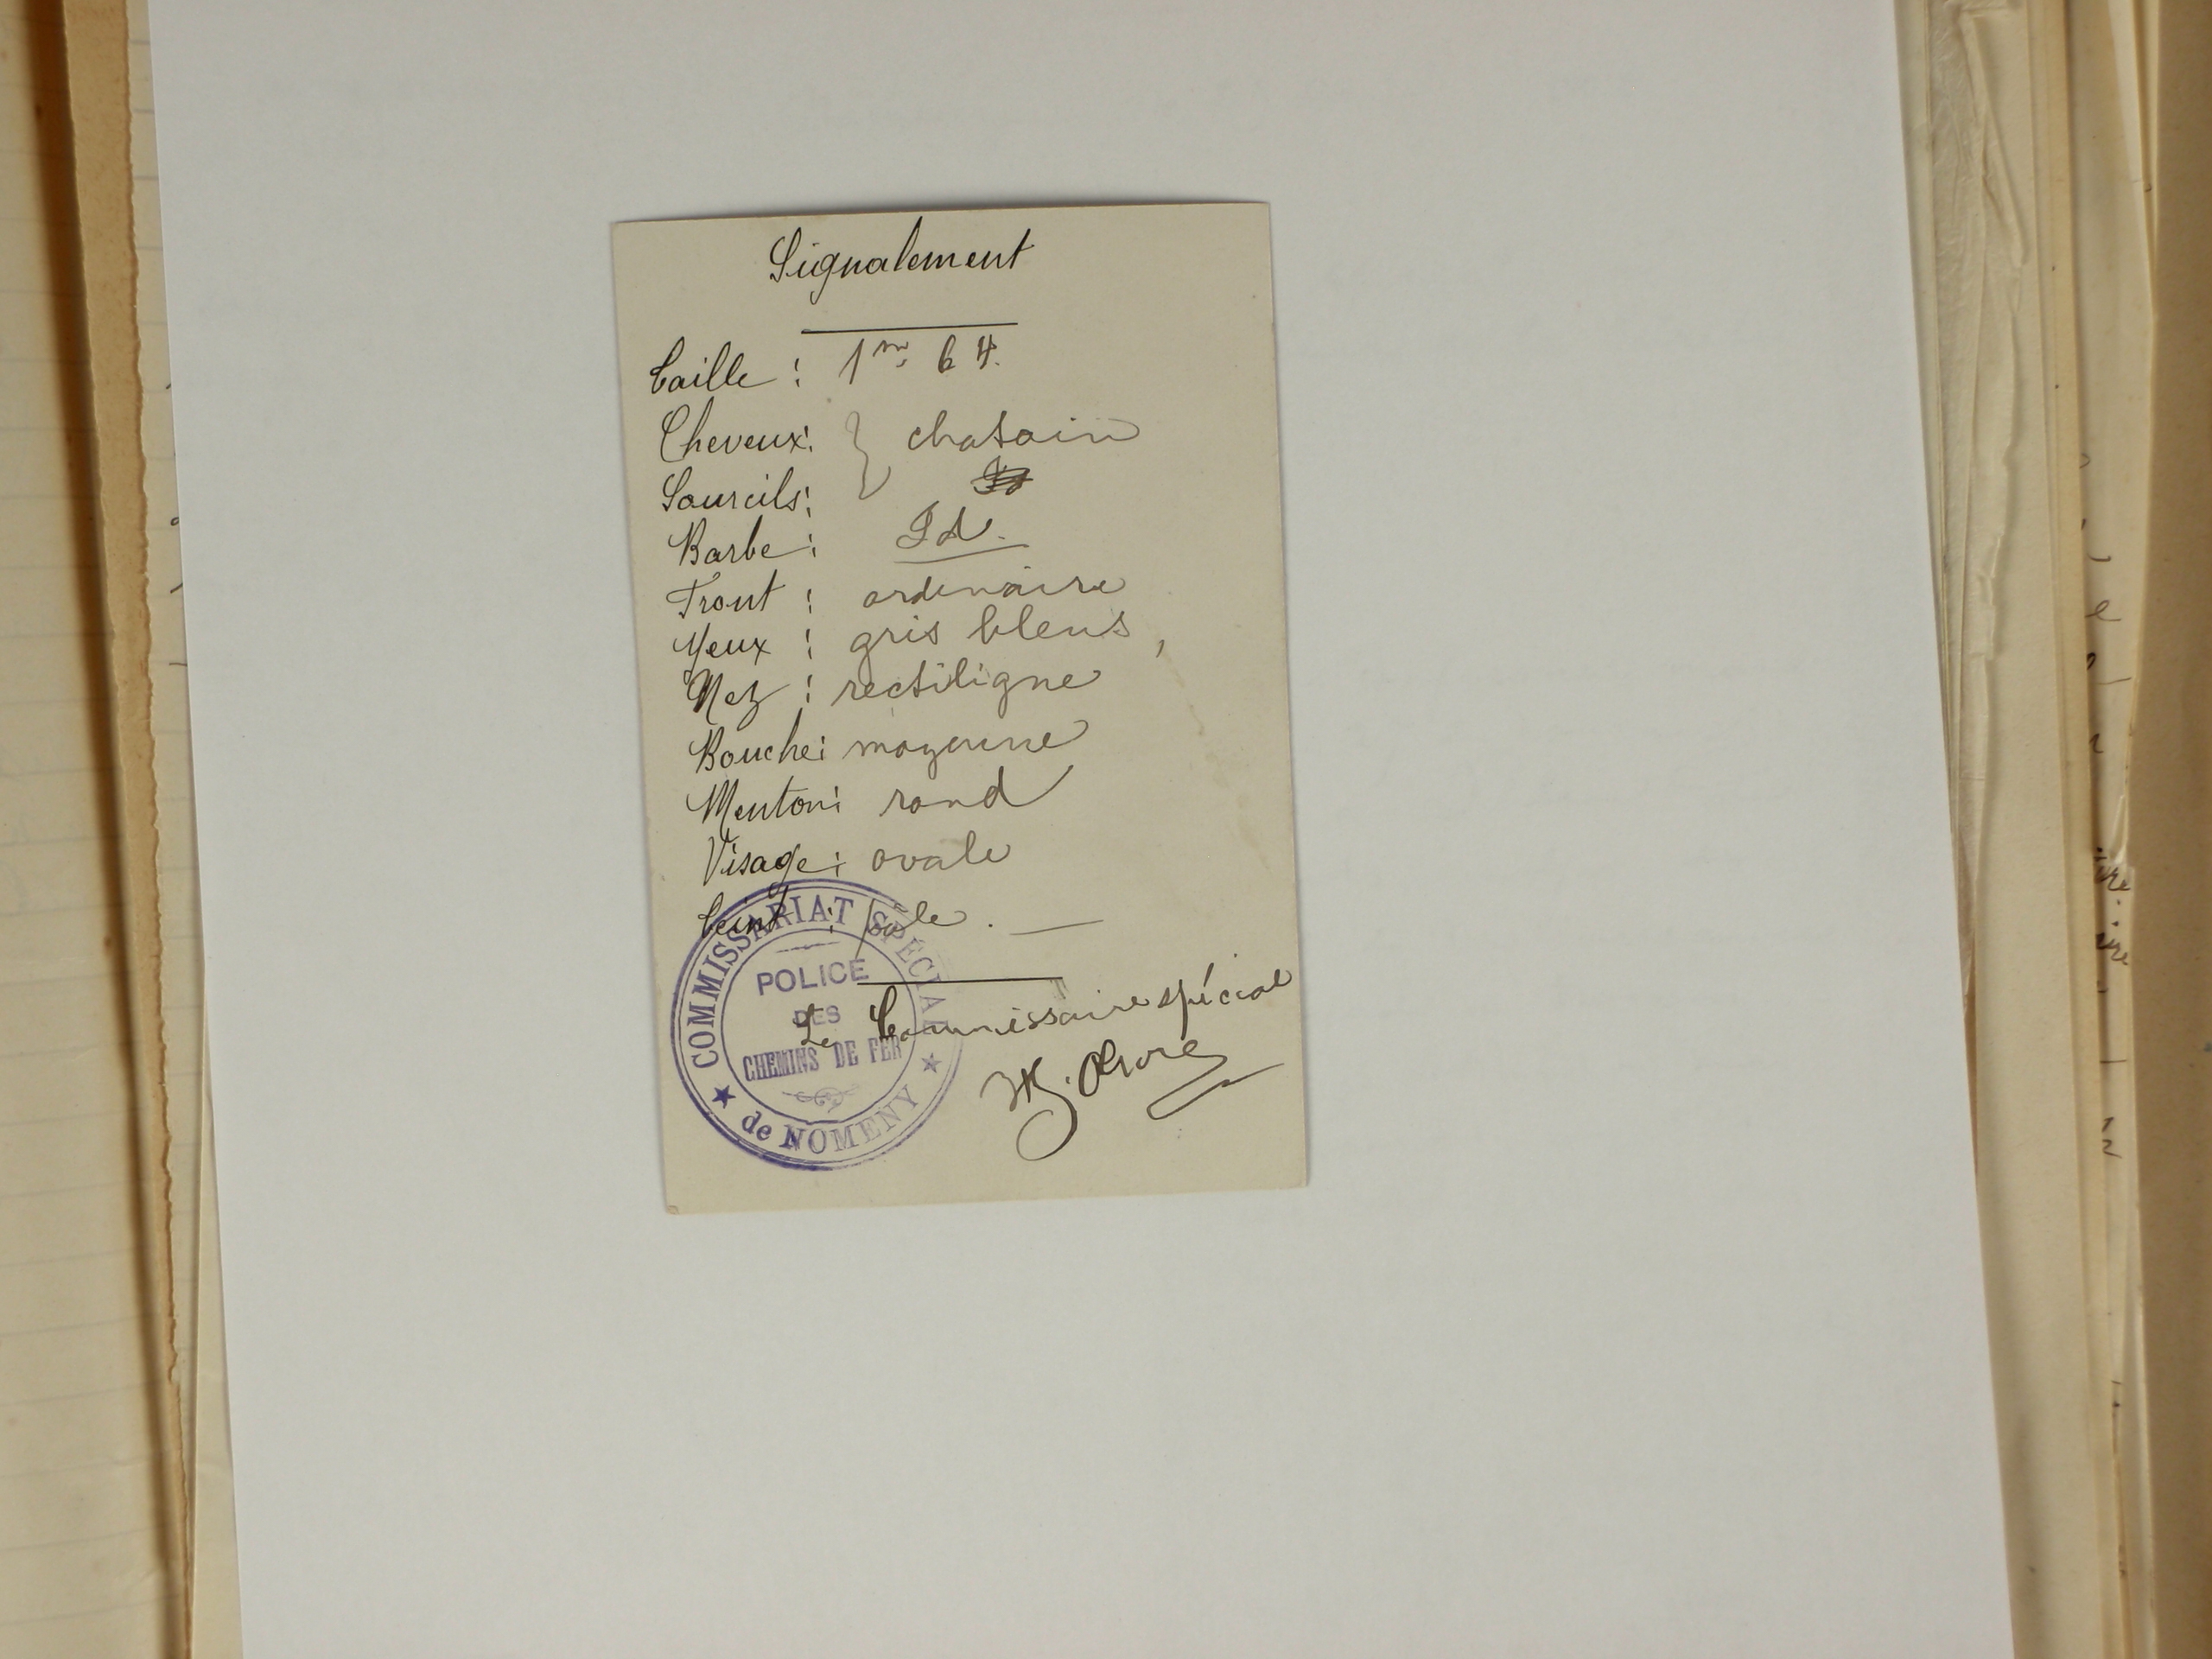 Signalement
Taille : 1m. 64.
Cheveux: } chatain
Sourcils:
Barbe : Id.
Front : ordinaire
Yeux : gris bleus,
Nez : rectiligne
Bouche: moyenne
Menton: rond
Visage: ovale
Teint : pâle. —
Le Commissaire spécial
COMMISSARIAT SPÉCIAL
POLICE
DES
CHEMINS DE FER
★ de NOMENY ★